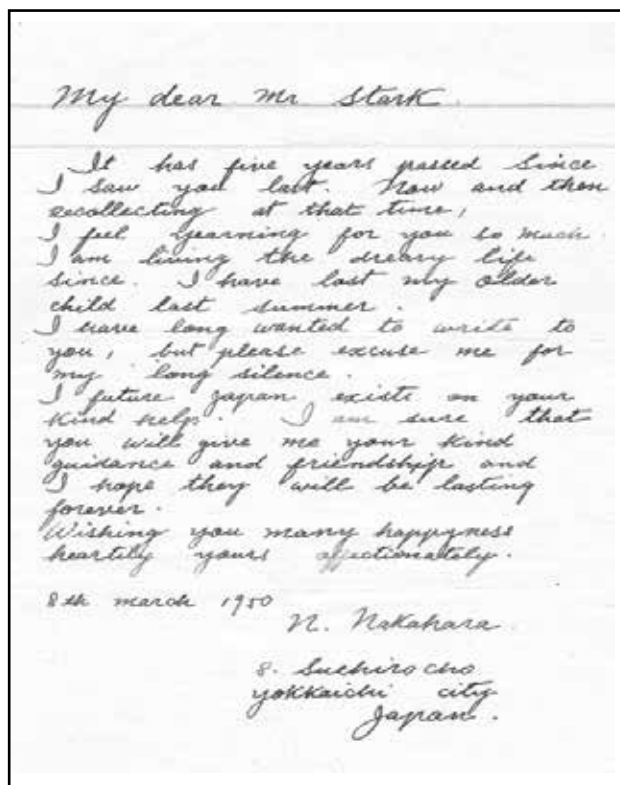 My dear Mr Stark.
It has five years passed since
I saw you last. Now and then
recollecting at that time,
I feel yearning for you so much.
I am living the dreary life
since. I have lost my older
child last summer.
I have long wanted to write to
you, but please excuse me for
my long silence.
I future Japan exists on your
kind help. I am sure that
you will give me your kind
guidance and friendship and
I hope they will be lasting
forever.
Wishing you many happyness
heartily yours affectionately.
8th march 1950
N. Nakahara
8. Suehiro cho
yokkaichi city
Japan.